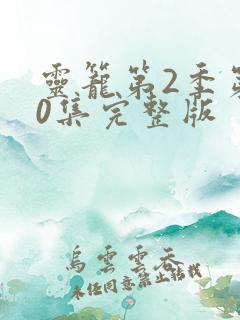 靈籠第2季第
0集完整版
烏雲雲吞
未任同意禁止轉載